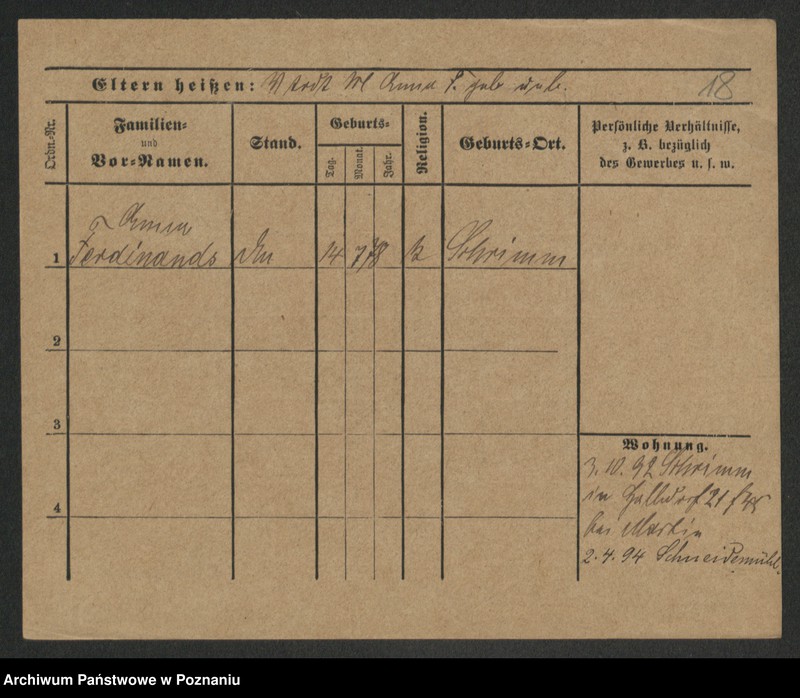 Eltern heißen: V todt M Anna F. geb. unb. 18
Ordn.-Nr.
Familien-
und
Vor-Namen.
Stand.
Geburts-
Tag. Monat. Jahr.
Religion.
Geburts-Ort.
Persönliche Verhältnisse,
z. B. bezüglich
des Gewerbes u. s. w.
Anna
1 Ferdinands 14 7 78 K Schrimm
2
3
4
Wohnung.
3.10.92 Schrimm
in Halbdorf 21
bei Martin
2.4.94 Schneidemühl.
Archiwum Państwowe w Poznaniu